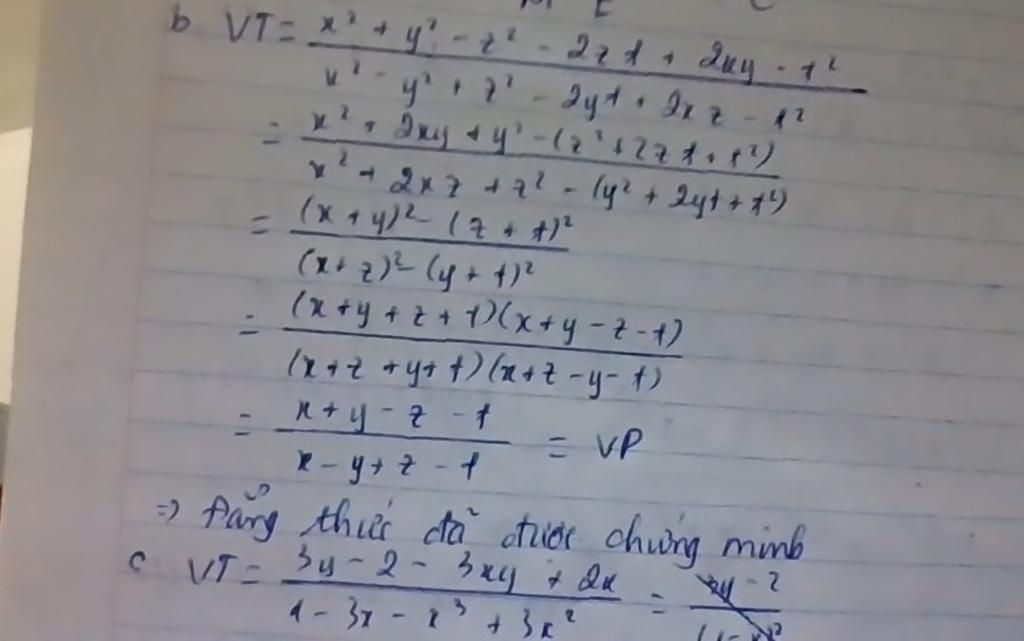 b VT = (x² + y² - z² - 2zt + 2xy - t²) / (x² - y² + z² - 2yt + 2xz - t²)
= (x² + 2xy + y² - (z² + 2zt + t²)) / (x² + 2xz + z² - (y² + 2yt + t²))
= ((x + y)² - (z + t)²) / ((x + z)² - (y + t)²)
= ((x + y + z + t)(x + y - z - t)) / ((x + z + y + t)(x + z - y - t))
= (x + y - z - t) / (x - y + z - t) = VP
=> Đẳng thức đã được chứng minh
c VT = (3y - 2 - 3xy + 2x) / (1 - 3x - x³ + 3x²) =